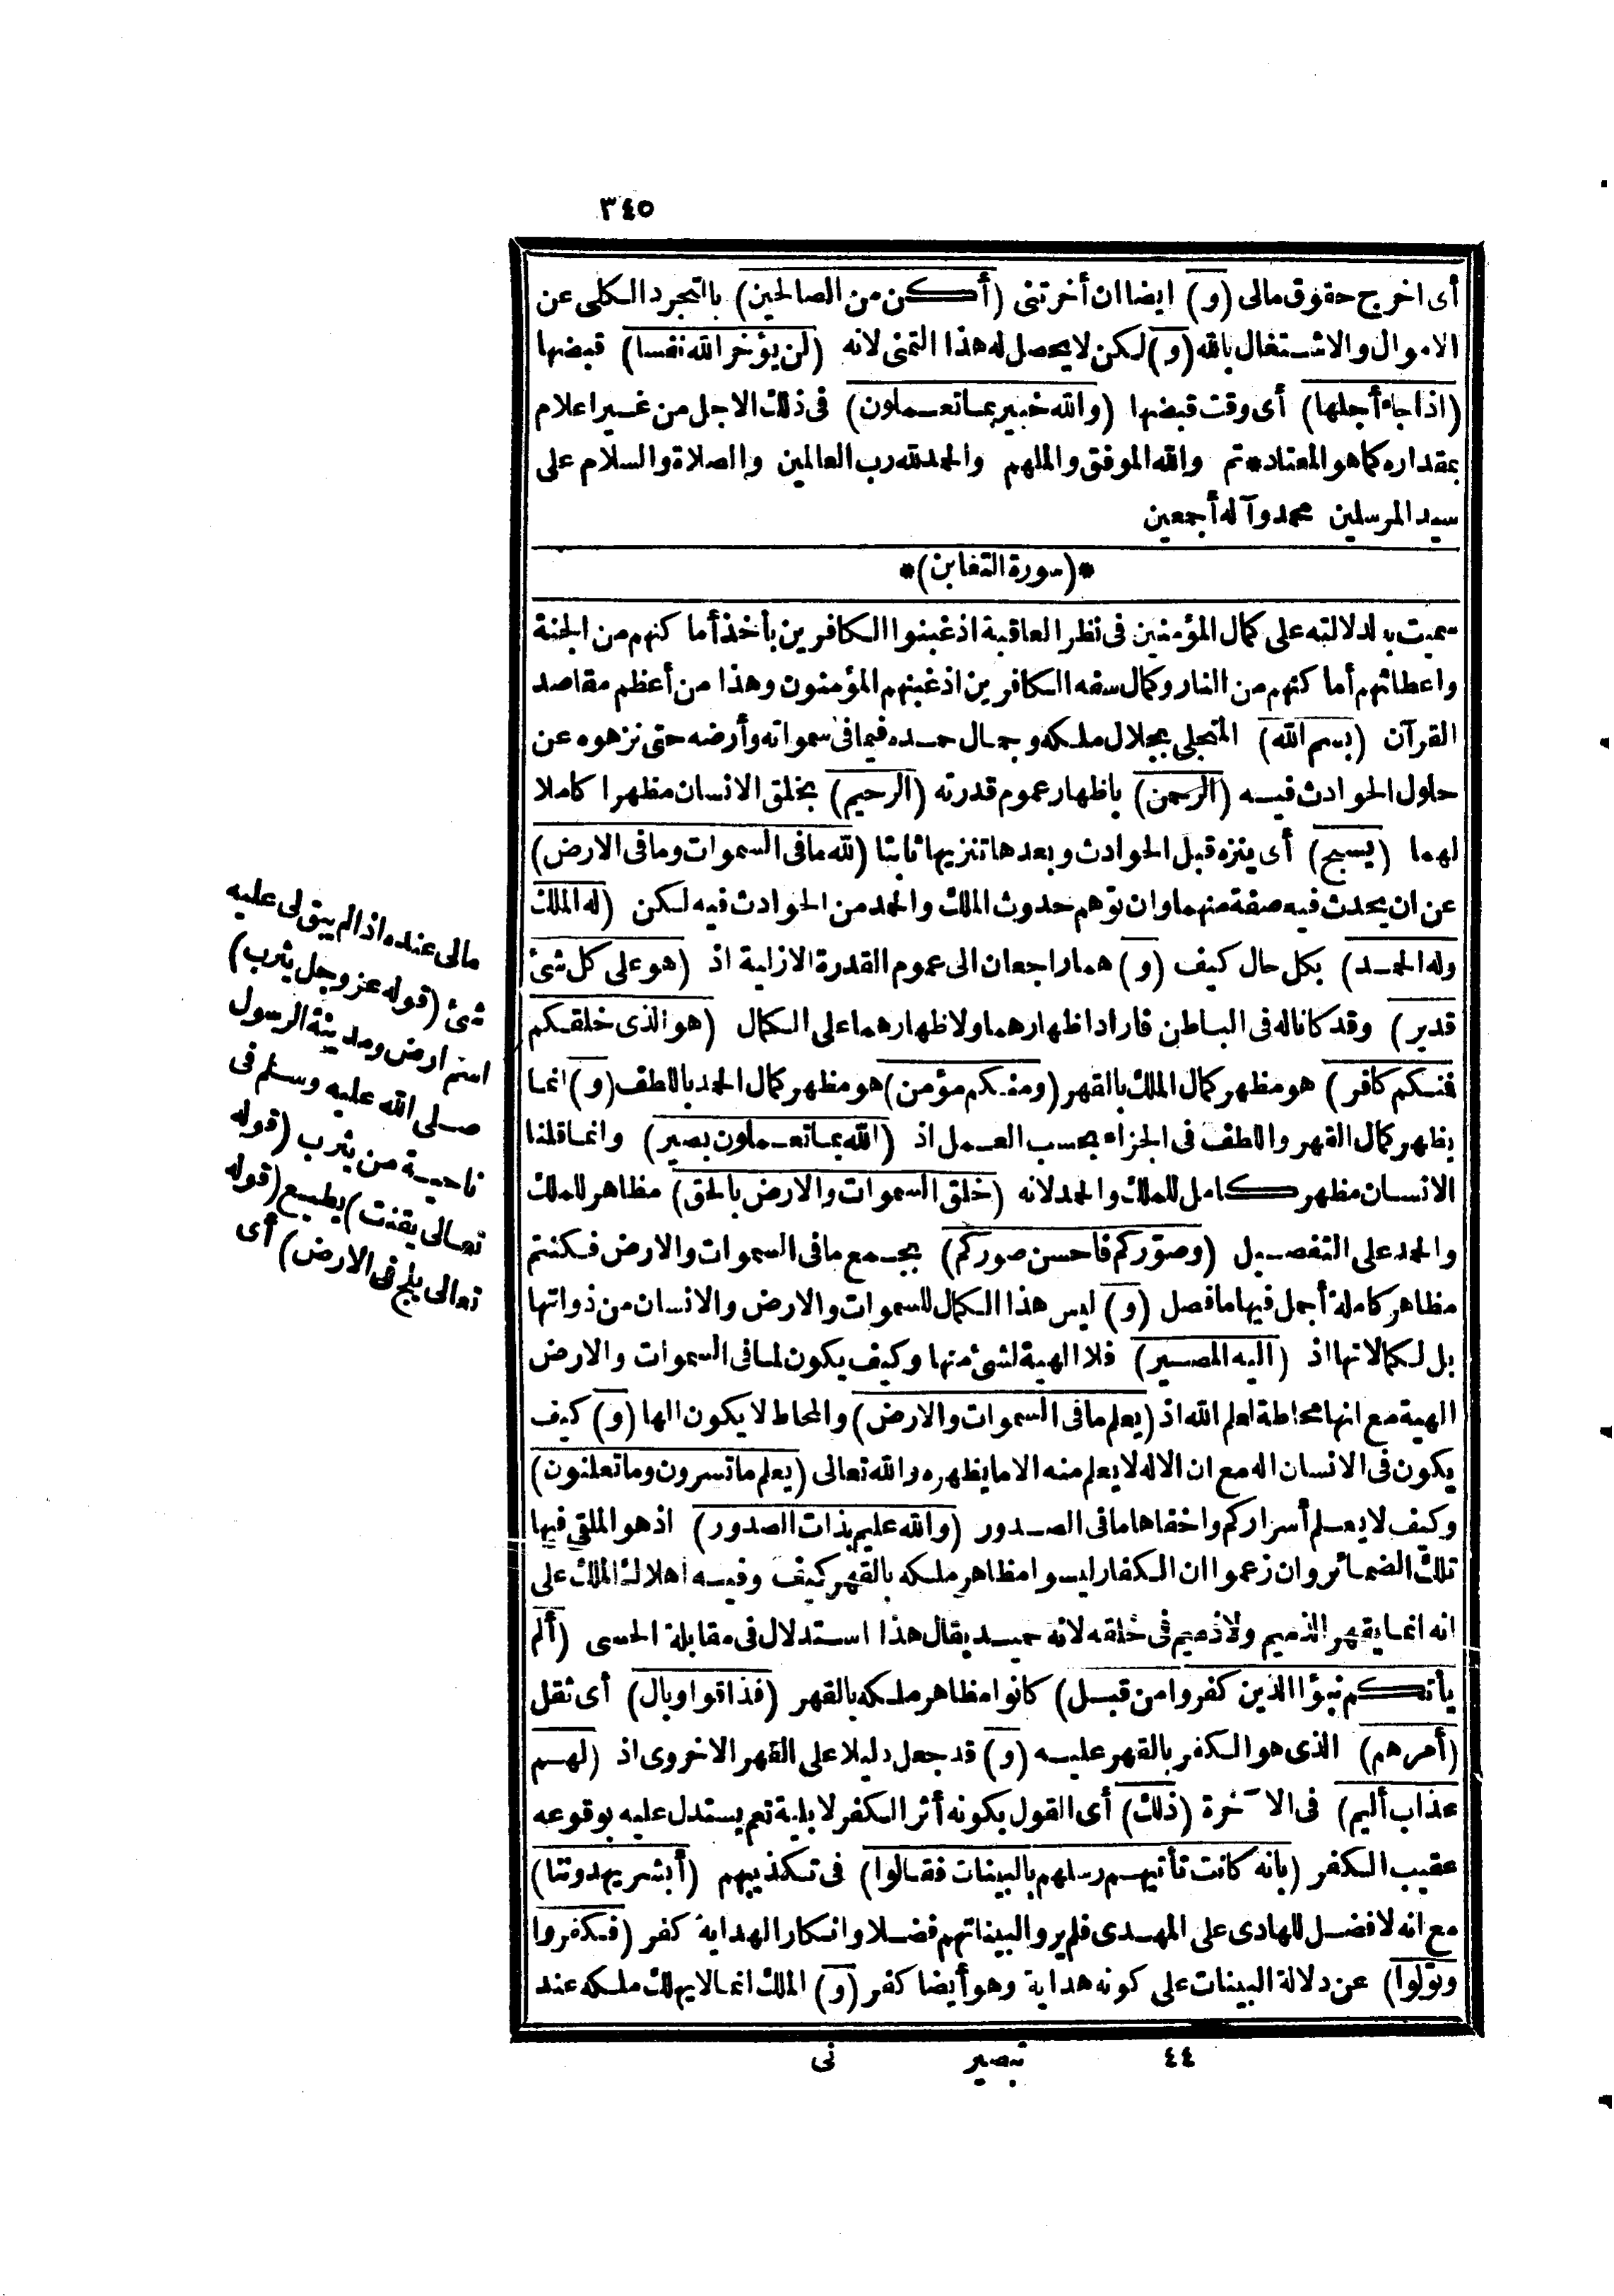 ٣٤٥
أى اخرج حقوق مالى (و) ايضا ان أخرتنى (أكن من الصالحين) بالتجرد الكلى عن
الاموال والاشتغال بالله (و) لكن لا يحصل له هذا التمنى لانه (لن يؤخر الله نفسا) قبضها
(اذا جاء أجلها) أى وقت قبضها (والله خبير بما تعملون) فى ذلك الاجل من غير اعلام
بمقداره كما هو المعتاد * تم والله الموفق والملهم والحمد لله رب العالمين والصلاة والسلام على
سيد المرسلين محمد وآله أجمعين
*(سورة التغابن)*
سميت به لدلالته على كمال المؤمنين فى نظر العاقبة اذ غبنوا الكافرين بأخذ أما كنهم من الجنة
واعطائهم أما كنهم من النار وكمال سفه الكافرين اذ غبنهم المؤمنون وهذا من أعظم مقاصد
القرآن (بسم الله) المتجلى بجلال ملكه وجمال حمده فيما فى سمواته وأرضه حتى نزهوه عن
حلول الحوادث فيه (الرحمن) باظهار عموم قدرته (الرحيم) بخلق الانسان مظهرا كاملا
لهما (يسبح) أى ينزه قبل الحوادث وبعدها تنزيها ثابتا (لله ما فى السموات وما فى الارض)
عن ان يحدث فيه صفة منهما وان توهم حدوث الملك والحمد من الحوادث فيه لكن (له الملك
وله الحمد) بكل حال كيف (و) هما راجعان الى عموم القدرة الازلية اذ (هو على كل شئ
قدير) وقد كانا له فى الباطن فاراد اظهارهما ولا ظهارهما على الكمال (هو الذى خلقكم
فمنكم كافر) هو مظهر كمال الملك بالقهر (ومنكم مؤمن) هو مظهر كمال الحمد باللطف (و) انما
يظهر كمال القهر واللطف فى الجزاء بحسب العمل اذ (الله بما تعملون بصير) وانما قلنا
الانسان مظهر كامل للملك والحمد لانه (خلق السموات والارض بالحق) مظاهر للملك
والحمد على التفصيل (وصوّركم فاحسن صوركم) بجمع ما فى السموات والارض فكنتم
مظاهر كاملة أجمل فيها ما فصل (و) ليس هذا الكمال للسموات والارض والانسان من ذواتها
بل لكمالاتها اذ (اليه المصير) فلا الهية لشئ منها وكيف يكون لما فى السموات والارض
الهية مع انها محاطة لعلم الله اذ (يعلم ما فى السموات والارض) والمحاط لا يكون الها (و) كيف
يكون فى الانسان اله مع ان الاله لا يعلم منه الا ما يظهره والله تعالى (يعلم ما تسرون وما تعلنون)
وكيف لا يعلم أسراركم واخفاها ما فى الصدور (والله عليم بذات الصدور) اذ هو الملقى فيها
تلك الضمائر وان زعموا ان الكفار ليسوا مظاهر ملكه بالقهر كيف وفيه اهلاك الملك على
انه انما يقهر الذميم ولا ذميم فى خلقه لانه حميد يقال هذا استدلال فى مقابلة الحسى (ألم
يأتكم نبؤا الذين كفروا من قبل) كانوا مظاهر ملكه بالقهر (فذاقوا وبال) أى ثقل
(أمرهم) الذى هو الكفر بالقهر عليه (و) قد جعل دليلا على القهر الاخروى اذ (لهم
عذاب أليم) فى الآخرة (ذلك) أى القول بكونه أثر الكفر لا بلية تعم يستدل عليه بوقوعه
عقيب الكفر (بانه كانت تأتيهم رسلهم بالبينات فقالوا) فى تكذيبهم (أبشر يهدوننا)
مع انه لا فضل للهادى على المهدى فلم يروا لبيناتهم فضلا وانكار الهداية كفر (فكفروا
وتولوا) عن دلالة البينات على كونه هداية وهو أيضا كفر (و) الملك انما لا يهلك ملكه عند
مالى عنده اذا لم يبق لى عليه
شئ (قوله عز وجل يثرب)
اسم ارض ومدينة الرسول
صلى الله عليه وسلم فى
ناحية من يثرب (قوله
تعالى يقنت) يطيع (قوله
تعالى يلج فى الارض) أى
٤٤ تبصير نى